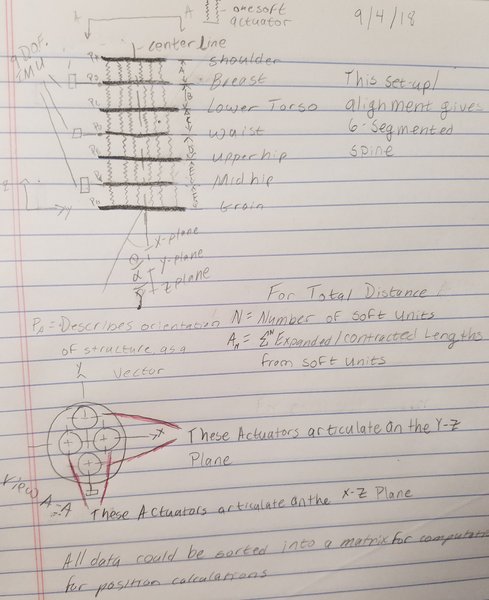 A A
- one soft
actuator
9/4/18
9 DOF
IMU
centerline
shoulder
Breast
Lower Torso
waist
Upper hip
Mid hip
Groin
This set-up/
alignment gives
6-segmented
spine
x-plane
y-plane
z plane
For Total Distance
Pn = Describes orientation N = Number of soft units
of structure, as a An = Σ Expanded/contracted Lengths
vector from soft units
x
These Actuators articulate on the Y-Z
Plane
View
A-A
These Actuators articulate on the X-Z Plane
All data could be sorted into a matrix for
for position calculations